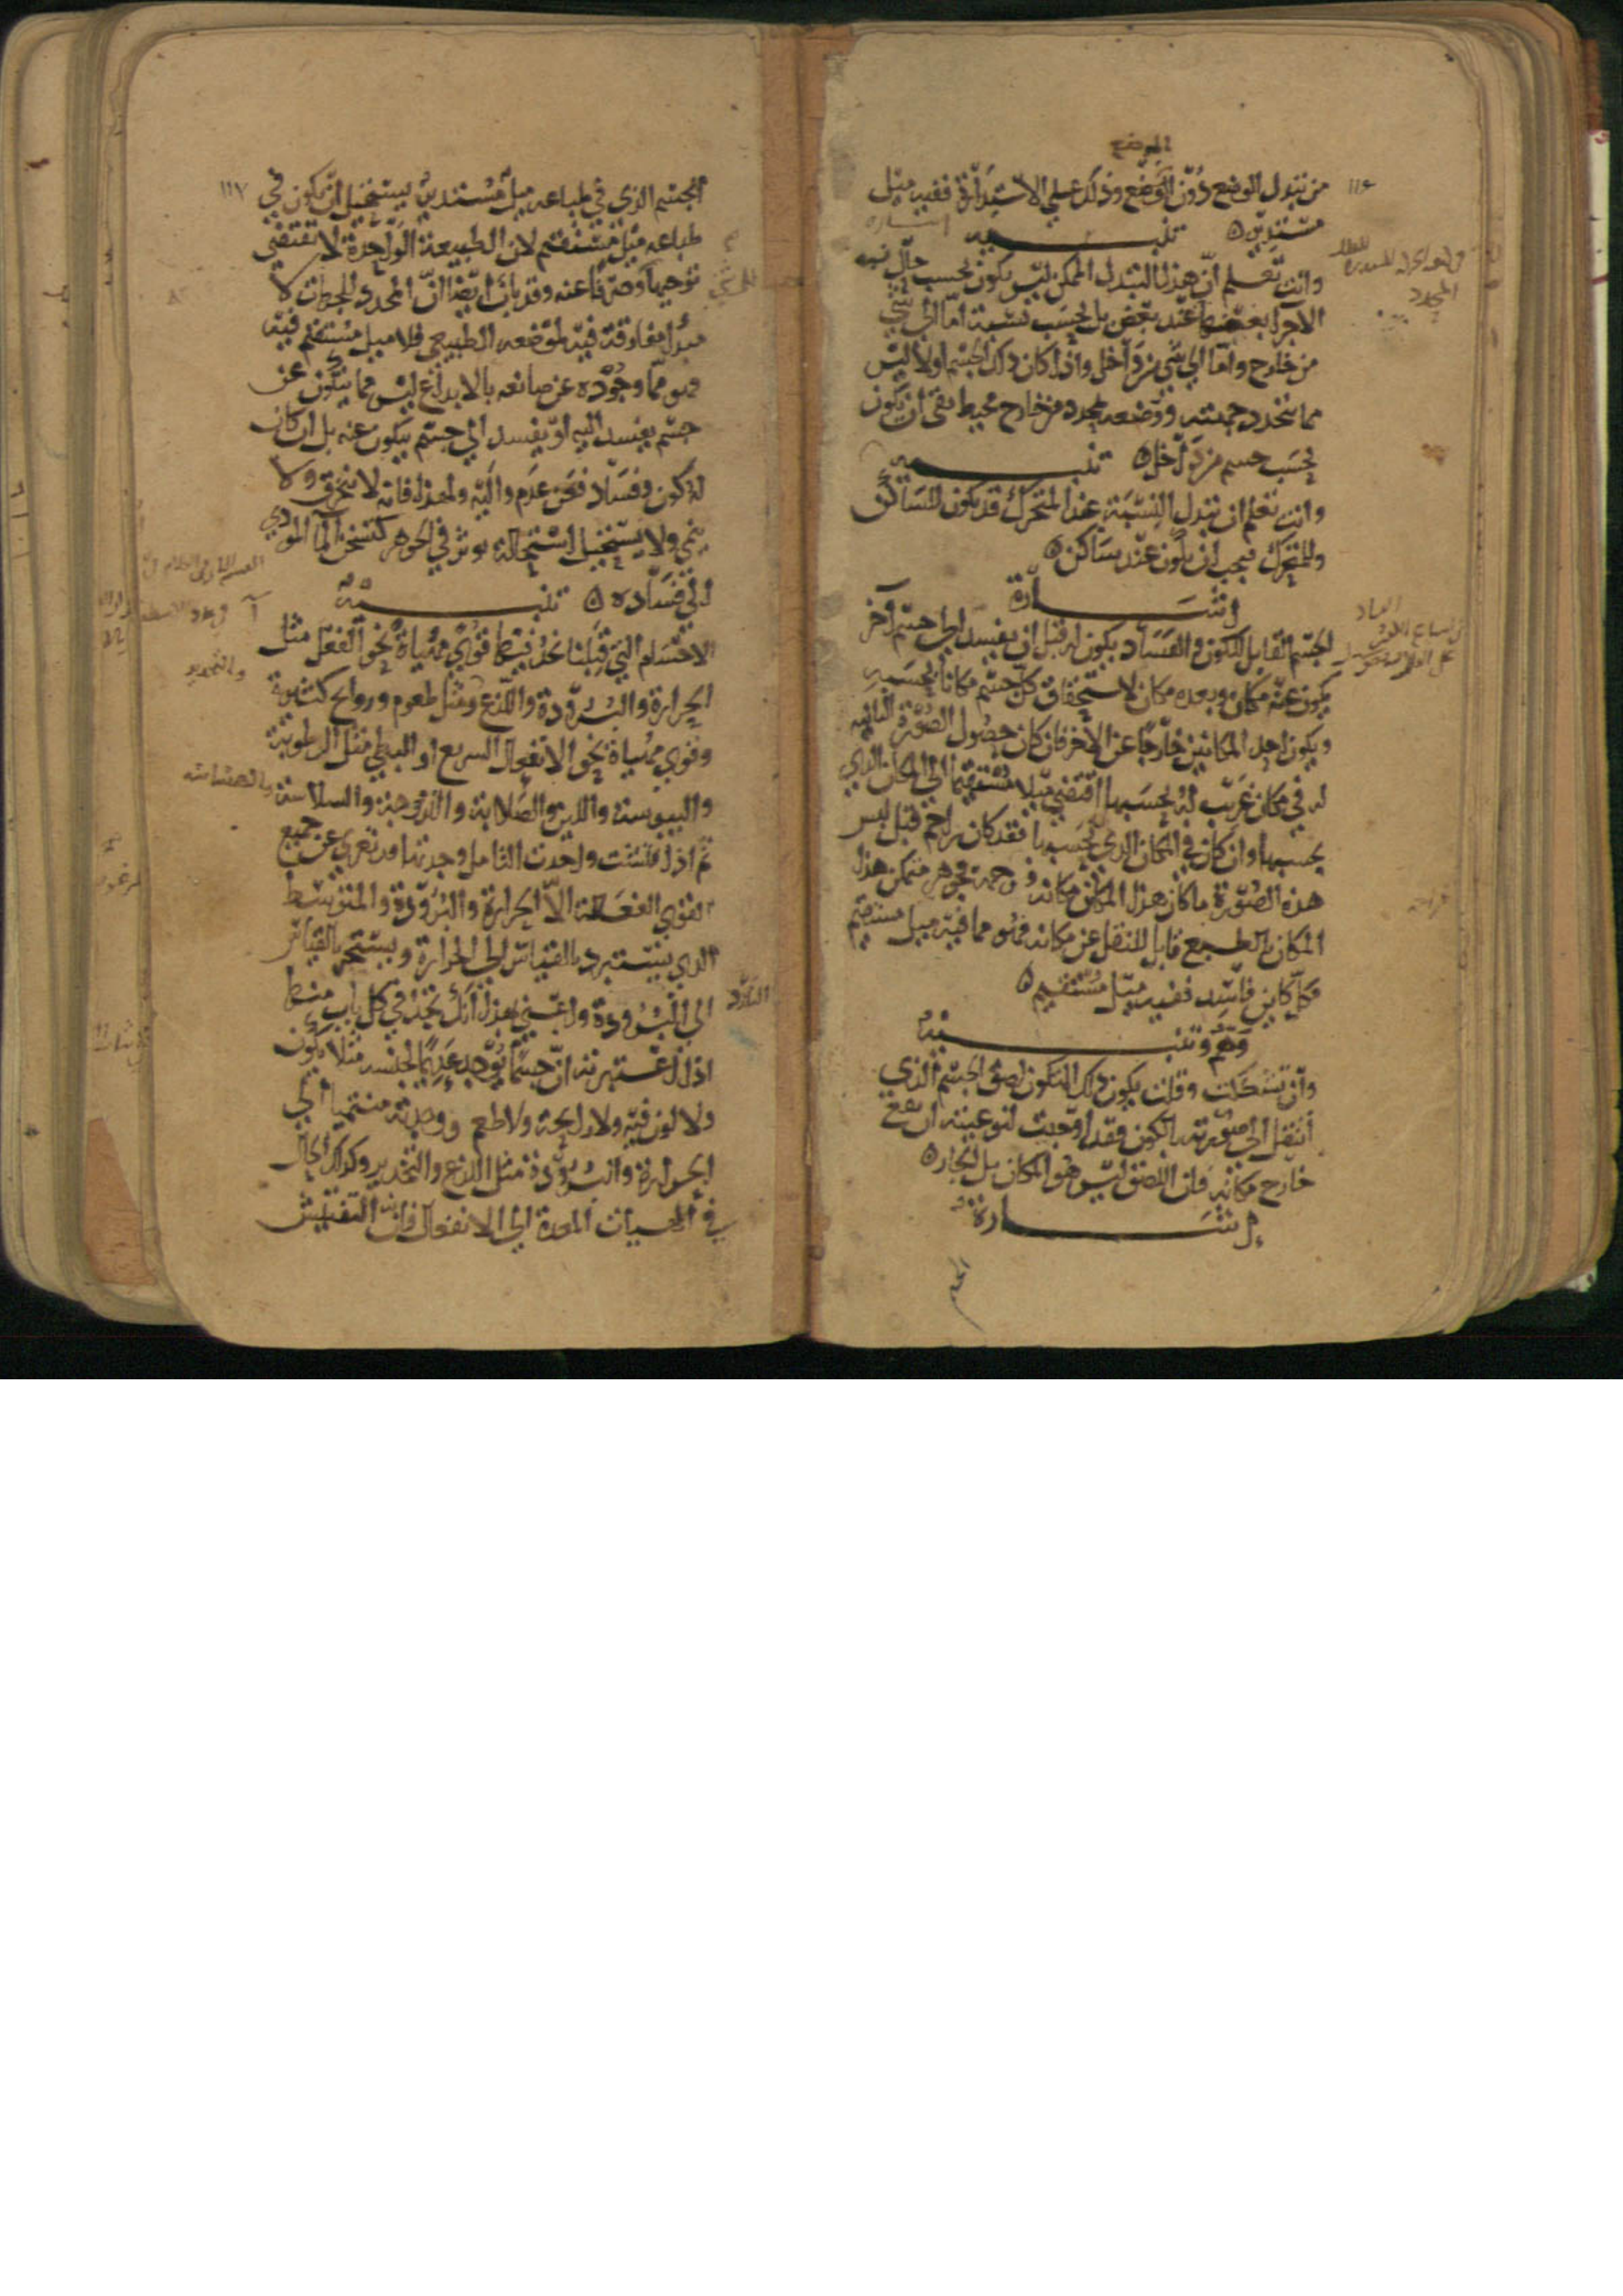 الموضع
١١٤
من تبدل الوضع دون الموضع وذلك على الاستدارة ففيه ميل
مستدير ه تنبيه
وانت تعلم ان هذا التبدل الممكن ليس يكون بحسب حال فيه
الاجزا بعضها عند بعض بل بحسب نسبة اما الى شي
من خارج واما الى شي من داخل واذا كان ذلك الجسم اولا ليس
مما يتحدد جهته ووضعه بمحدد من خارج محيط بقى ان يكون
بحسب جسم من داخل ه تنبيه
وانت تعلم ان تبدل النسبة عند المتحرك قد يكون للساكن
وللمتحرك فيجب ان يكون عند ساكن ه
اشارة
الجسم القابل للكون والفساد يكون له قبل ان يفسد الى جسم آخر
يكون عنه مكان وبعده مكان لاستحقاق كل جسم مكانا بحسبه
ويكون احد المكانين خارجا عن الآخر فان كان حصول الصورة الثانيه
له في مكان غريب له بحسبها اقتضى ميلا مستقيما الى المكان الذي
بحسبها وان كان في المكان الذي بحسبها فقد كان زاحم قبل لبس
هذه الصورة ما كان هذا المكان مكانه فجوهر متمكن هذا
المكان بالطبع قابل للنقل عن مكانه فهو مما فيه ميل مستقيم
فكل كاين فاسد ففيه ميل مستقيم ه
وهم وتنبيه
وان تشككت وقلت يكون ذلك المتكون لصق الجسم الذي
انتقل الى صورته بالكون فقد اوجبت لنوعيته ان يقع
خارج مكانه فان اللصق ليس هو المكان بل الجار ه
اشارة
الجسم
١١٧
الجسم الذي في طباعه ميل مستدير يستحيل ان يكون في
طباعه ميل مستقيم لان الطبيعة الواحدة لا تقتضي
توجيها وصرفا عنه وقد بان ايضا ان المحدد للجهات لا
مبدأ مفارقة فيه لموضعه الطبيعي فلا ميل مستقيم فيه
فهو مما وجوده عن صانعه بالابداع ليس مما يتكون عن
جسم يفسد اليه او يفسد الى جسم يتكون عنه بل ان كان
له كون وفساد فعن عدم واليه ولهذا فانه لا ينخرق ولا
ينمي ولا يستحيل استحالة توثر في الجوهر كتسخن الما المودي
الى فساده ه تنبيه
الاجسام التي قبلنا نجد فيها قوى مهياة نحو الفعل مثل
الحرارة والبرودة واللذع ومثل طعوم وروايح كثيرة
وقوى مهياة نحو الانفعال السريع او البطي مثل الرطوبة
واليبوسة واللين والصلابة واللزوجة والسلاسة
ثم اذا فتشت واجدت التامل وجدتها قد تعرى عن جميع
القوى الفعالة الا الحرارة والبرودة والمتوسط
الذي يستبرد بالقياس الى الحرارة ويستحر بالقياس
الى البرودة واعني بهذا انك تجد في كل باب منها
اذا اعتبرته ان جسما يوجد عديما لجنسه مثلا يكون
ولا لون فيه ولا رايحة ولا طعم ووجدته منتهيا الى
الحرارة والبرودة مثل اللذع والتخدير وكذلك الحال
في الهيات المعدة الى الانفعال فان التفتيش